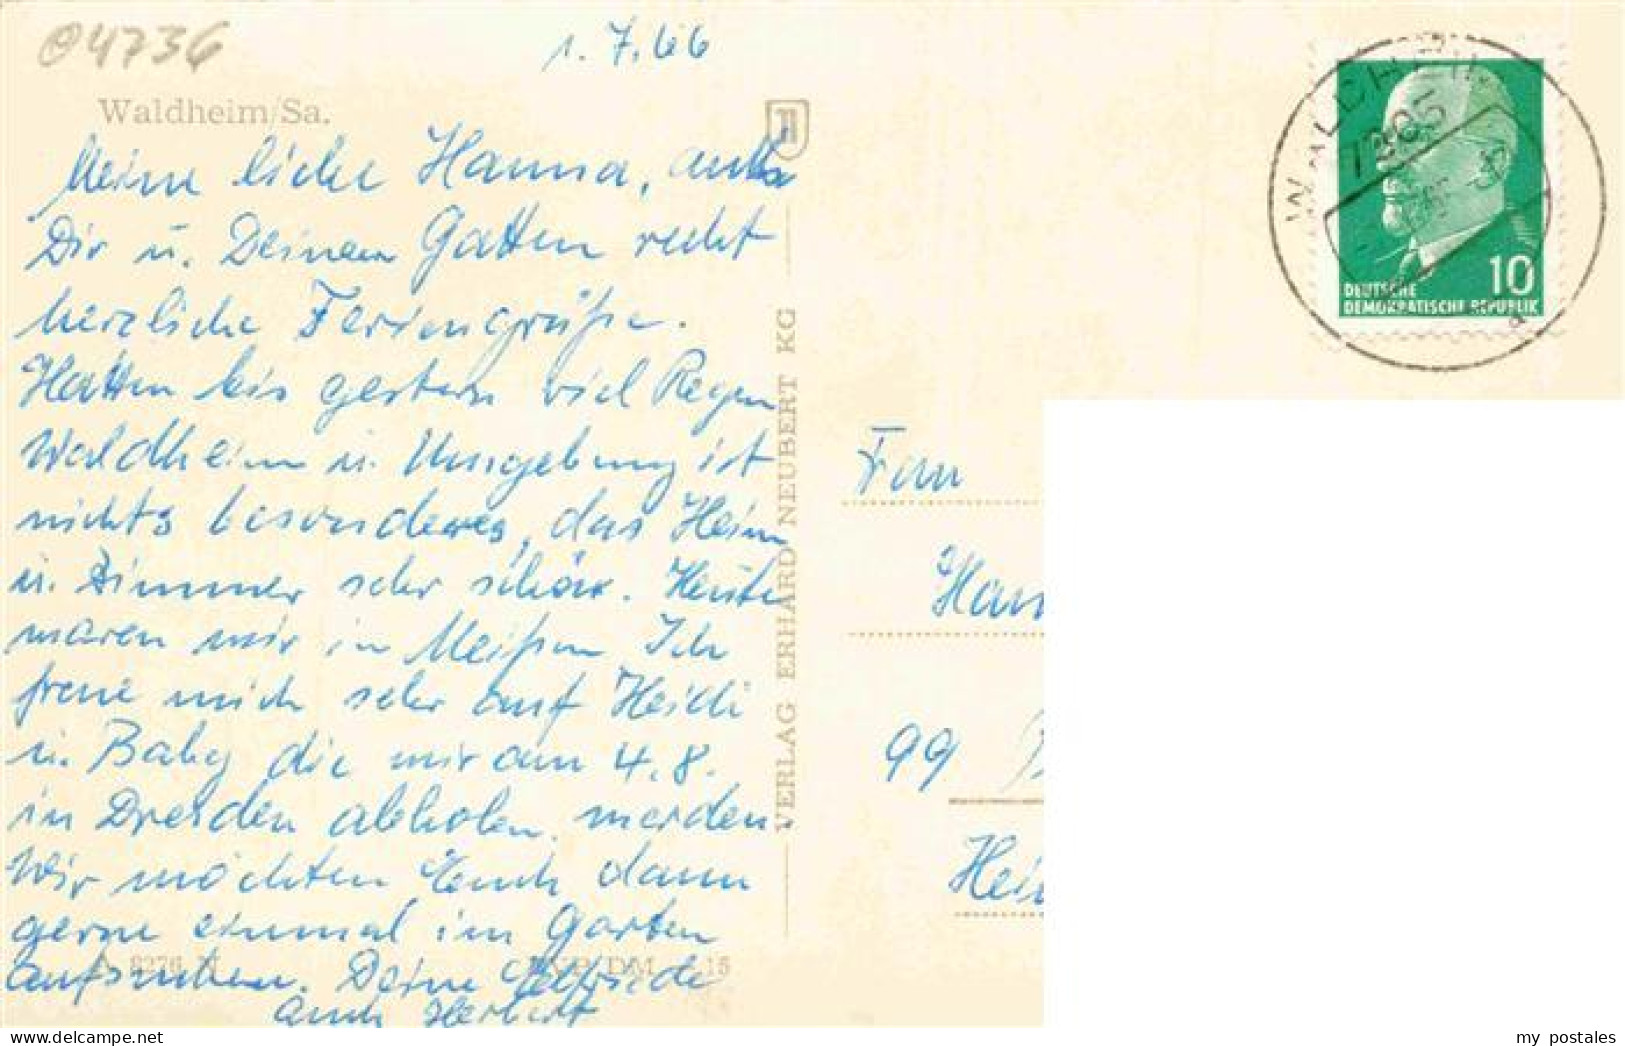 04736
1. 7. 66
Waldheim/Sa.
Meine liebe Hanna, auch
Dir u. Deinem Gatten recht
herzliche Feriengrüße.
Hatten bis gestern viel Regen
Waldheim u. Umgebung ist
nichts besonderes, das Heim
u. Zimmer sehr schön. Heute
waren wir in Meißen Ich
freue mich sehr auf Heidi
u. Baby die wir am 4. 8.
in Dresden abholen werden.
Wir möchten Euch dann
gerne einmal im Garten
aufsuchen. Deine Elfriede
auch Herbert
A 8276 M
15
VERLAG ERHARD NEUBERT KG
WALDHEIM
7305
a
10
DEUTSCHE
DEMOKRATISCHE REPUBLIK
Frau
Han
99
Hei
my postales